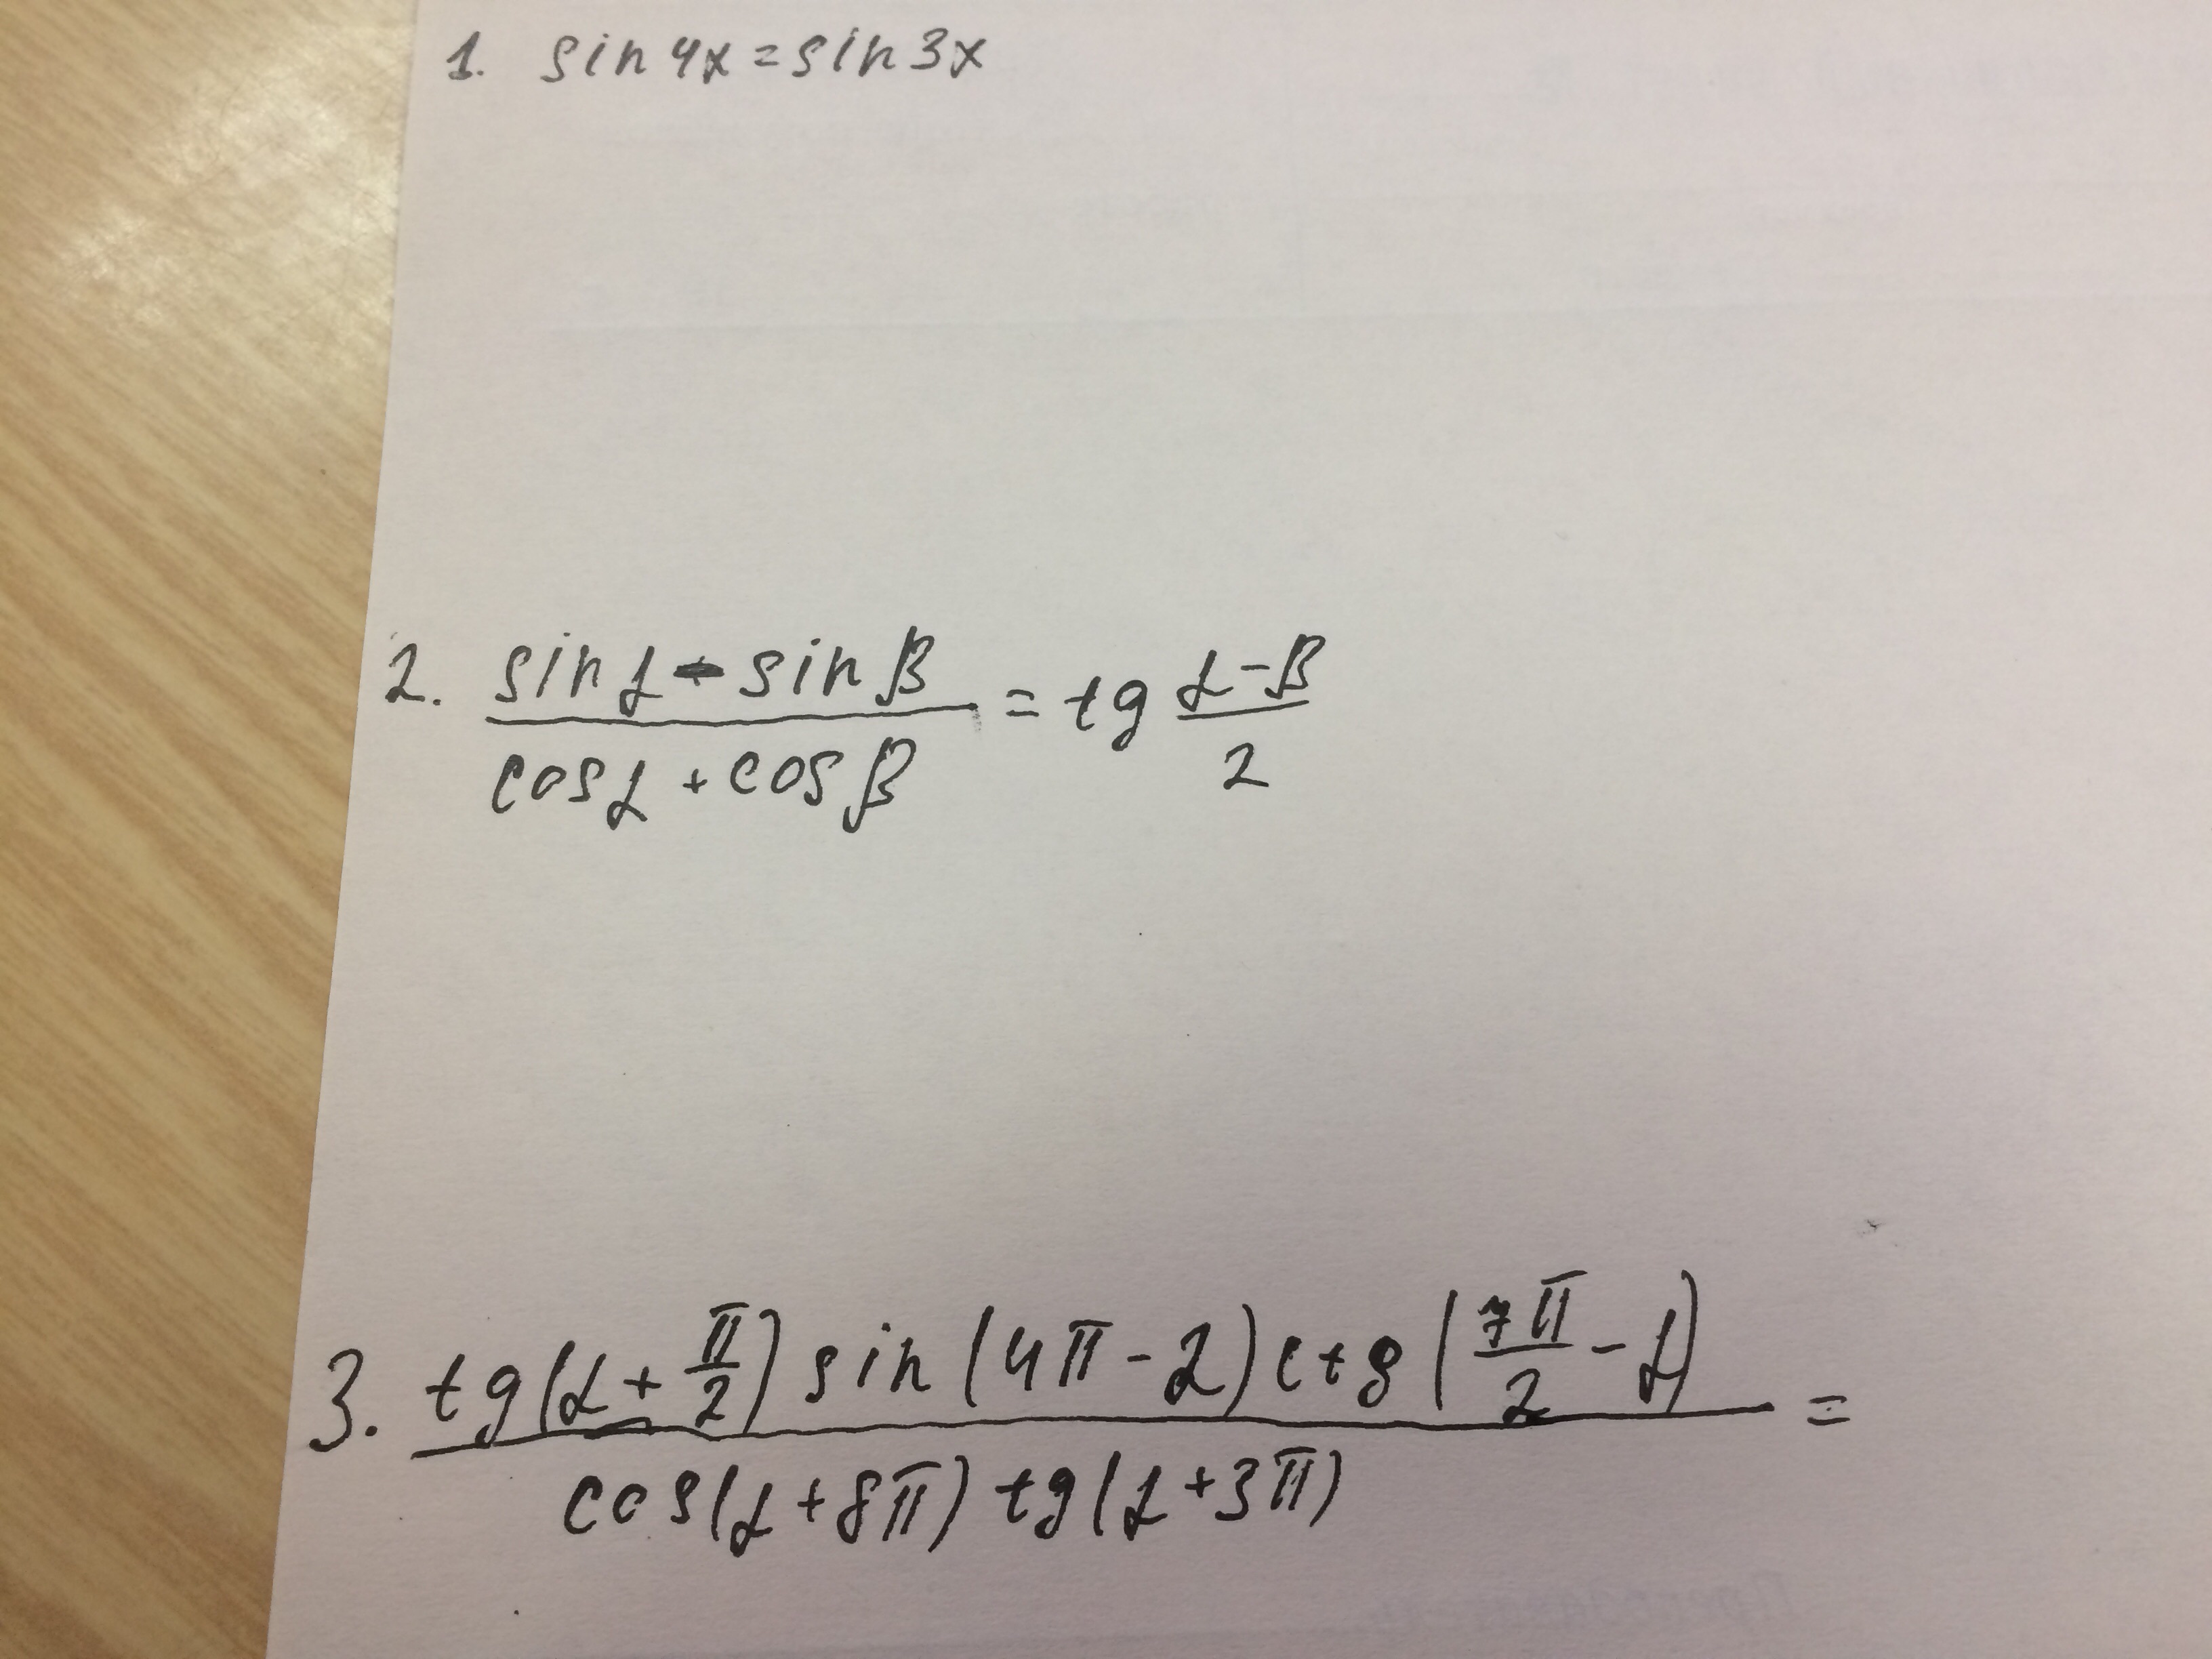 1. sin 4x = sin 3x
2. (sin α - sin β) / (cos α + cos β) = tg (α - β) / 2
3. (tg(α + π/2) sin(4π - 2) ctg(7π/2 - α)) / (cos(α + 8π) tg(α + 3π)) =